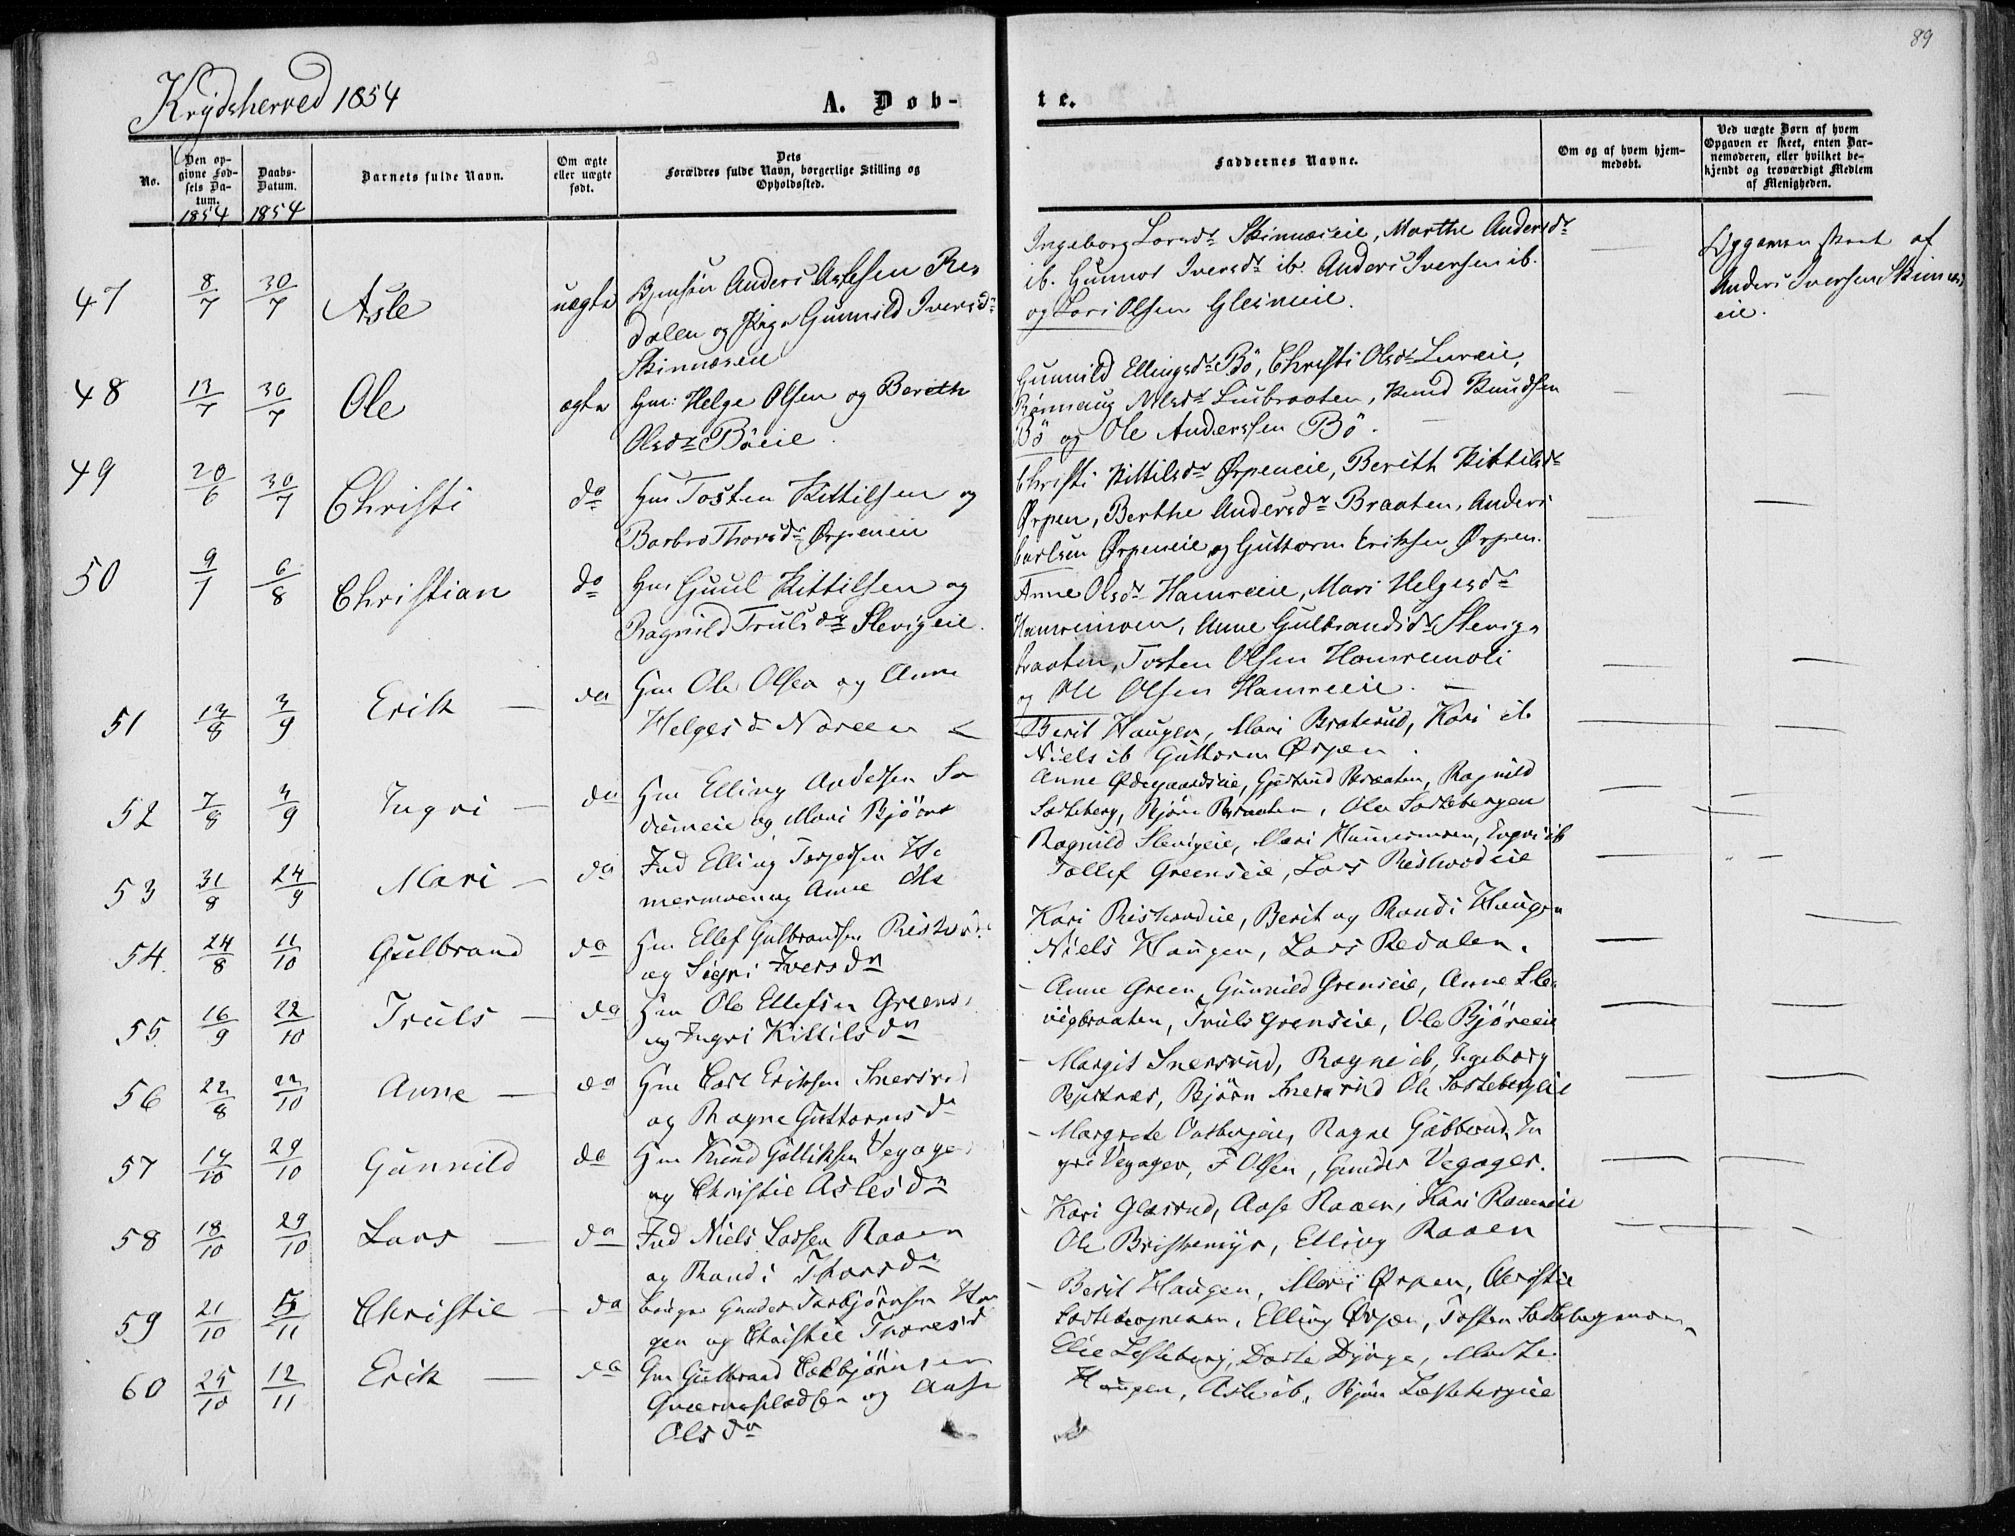 89
Krydsherred 1854
A. Døb-
te.
No.
Den op-
givne Fød-
sels Da-
tum.
1854
Daabs-
Datum.
1854
Barnets fulde Navn.
Om ægte
eller uægte
født.
Dets
Forældres fulde Navn, borgerlige Stilling og
Opholdssted.
Faddernes Navne.
Om og af hvem hjem-
medøbt.
Ved uægte Børn af hvem
Opgaven er skeet, enten Bar-
nemoderen, eller hvilket be-
kjendt og troværdigt Medlem
af Menigheden.
47 8/7 30/7 Asle uægte
Anders Aslesen Re-
dalen og Pige Gunnild Iversdr
Skinnæseie
Ingeborg Larsdr Skinnæseie, Marthe Andersdr
ib. Gunnor Iversdr ib. Anders Iversen ib.
og Lars Olsen Glesneeie.
af
Anders Iversen Skinnæs
eie.
48 13/7 30/7 Ole ægte
Hm: Helge Olsen og Bereth
Olsdr Bøeie.
Gunnild Ellingsdr Bø, Christi Olsdr Lureeie,
Rønnaug Nilsdr Liubraaten, Knud Knudsen
Bø og Ole Anderssen Bø.
49 20/6 30/7 Christi do
Hm Tosten Kittilsen og
Barbro Thorsdr Ørpeneie
Christi Kittilsdr Ørpeneie, Berith Kittilsdr
Ørpen, Berthe Andersdr Braaten, Anders
Carlsen Ørpeneie og Guttorm Eriksen Ørpen.
50 9/7 6/8 Christian do
Hm Gjuul Kittilsen og
Ragnild Trulsdr Slevigeie.
Anne Olsdr Hamreeie, Mari Helgesdr
Hamremoen, Anne Gulbrandsdr Slevig-
braaten, Tosten Olsen Hamremoen
og Ole Olsen Hamreeie.
51 13/8 3/9 Erik do
Hm Ole Olsen og Anne
Helgesdr Noreen
Berit Haugen, Mari Braterud, Kari ib
Niels ib Guttorm Ørpen.
52 7/8 3/9 Ingri do
Hm Elling Andersen So-
og Mari Bjørns
Anne Ødegaardseie, Gjertrud Braaten, Ragnild
Sorteberg, Bjørn Braaten, Ole Sortebergen
53 31/8 24/9 Mari do
Ind Elling Torgersen Ha-
mermoen og Anne Ols
Ragnild Slevigeie, Mari Hamremoen, Ingri ib
Tollef Greenseie, Lars Ristvedeie
54. 24/8 11/10 Gulbrand do
Hm Ellef Gulbrandsen Ristved
og Sigri Iversdr
Kari Ristvedeie, Berit og Randi Haugen
Niels Haugen, Lars Redalen.
55. 16/9 22/10 Truls do
Hm Ole Ellefsen Greens
og Ingri Kittilsdr
Anne Green, Gunnild Grenseie, Anne Sle-
vigbraaten, Truls Grenseie, Ole Bjøreeie
56 22/8 22/10 Anne do
Hm Carl Eriksen Snersrud
og Ragne Guttormsdr
Margit Snersrud, Ragne ib, Ingeborg
Bjertnæs, Bjørn Snersrud Ole Sortebergeie
57 14/10 29/10 Gunnild do
Hm Knud Gulliksen Vegager
og Christie Aslesdr
Margrete Ragne Gabberud, In
gri Vegager, F Olsen, Gunder Vegager.
58 18/10 29/10 Lars do
Ind Niels Larsen Raaen
og Randi Thorsdr
Kari Glesrud, Aase Raaen, Kari Raaeneie
Ole Bristemyr, Elling Raaen
59 21/10 5/11 Christie do
Gunder Torbjørnsen Hau
gen og Christie Thoresd
Berit Haugen, Mari Ørpen, Christie
Elling Ørpen, Tosten
60 25/10 12/11 Erik do
Hm Gulbrand Torbjørnsen
Qværnepladsen og Aase
Olsdr
Elie Sorteberg, Dorte Marte
Haugen, Asle ib, Bjørn Sortebergeie